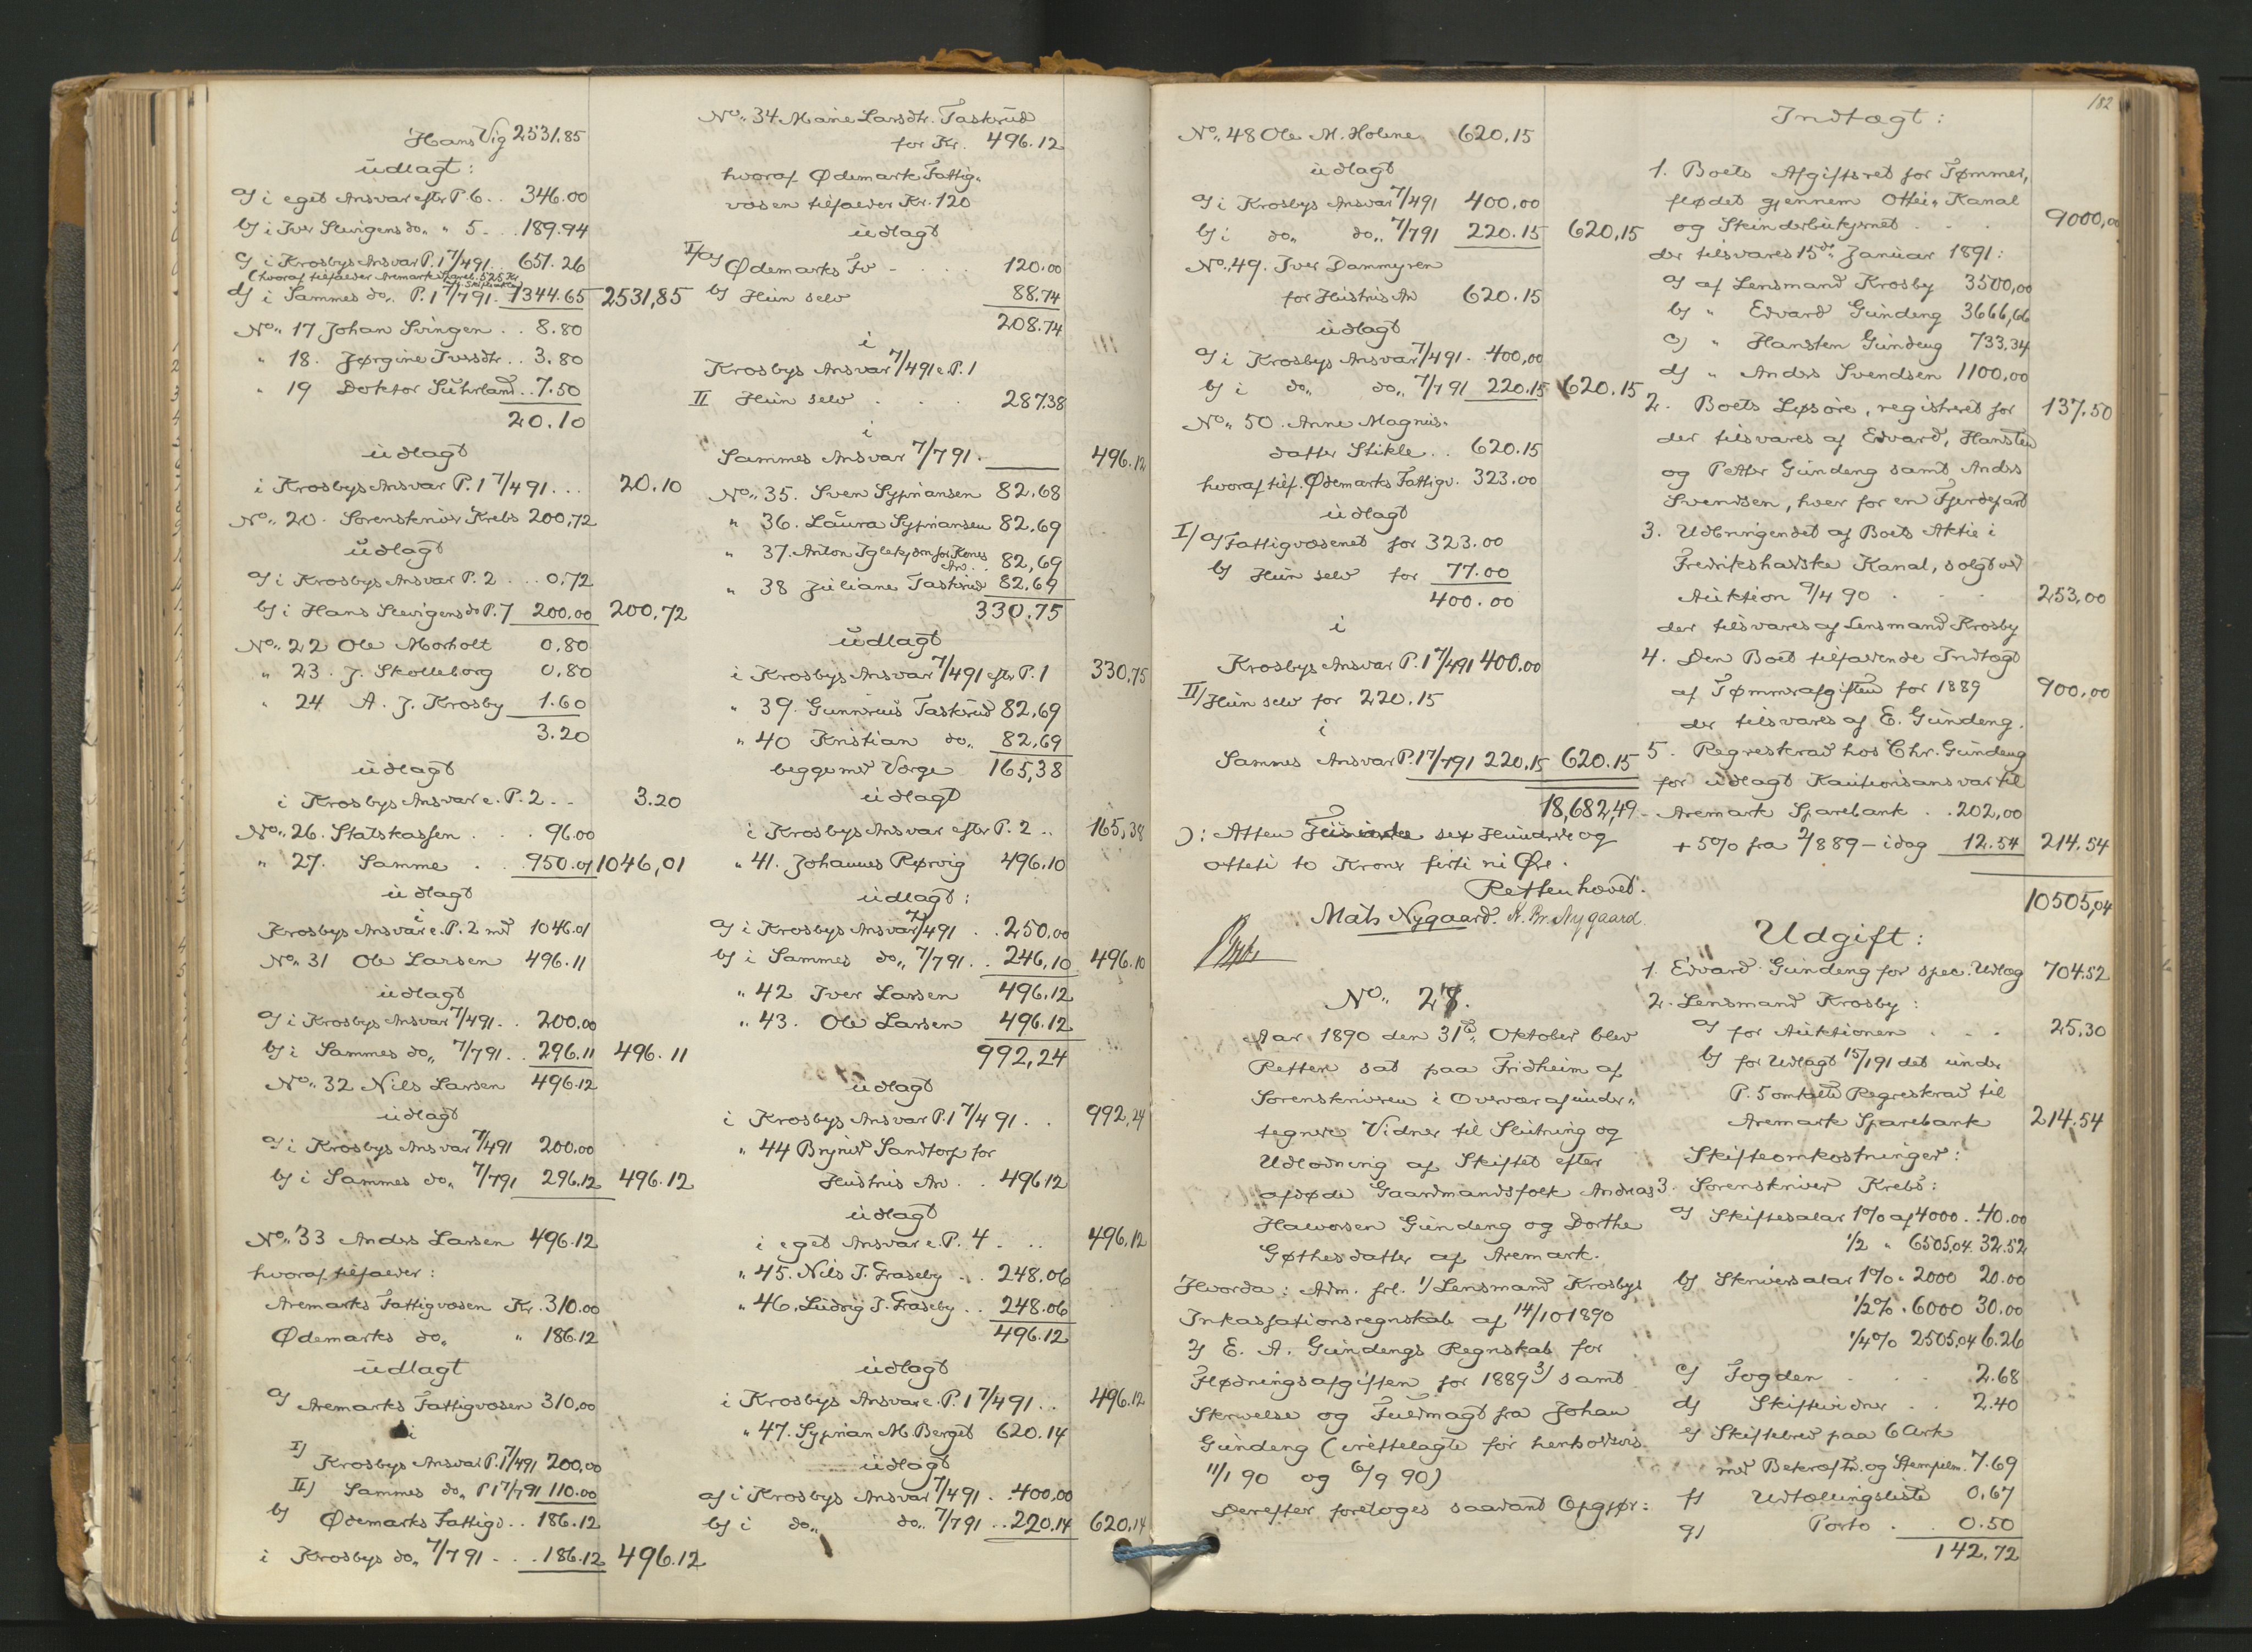 Hans Vig 2531.85
udlagt:
a) i eget Ansvar efter P. 6 . . 346.00
b) i Iver Slevigens do. " 5 . . 189.94
c) i Krosbys Ansvar P. 1 7/4 91 . . 651.26
(hvoraf tilfalder Aremarks Spareb. 525 Kr.
d) i Sammes do. P. 1 7/7 91 . 1344.65 2531,85
No. 17 Johan Svingen . . 8.80
" 18. Jørgine Iversdtr. . 3.80
" 19 Doktor Suhrland . . 7.50
20.10
udlagt
i Krosbys Ansvar P. 1 7/4 91 . . . 20.10
No. 20. Sorenskriver Krebs 200,72
udlagt
a) i Krosbys Ansvar P. 2 . . . 0.72
b) i Hans Slevigens do P. 7 200.00 200,72
No. 22 Ole Morholt 0.80
" 23. J. Skolleborg 0.80
" 24 A. J. Krosby 1.60
3.20
udlagt
i Krosbys Ansvar e. P. 2 . . 3.20
No. 26. Statskassen . . . 96.00
" 27. Samme . . 950.01 1046,01
udlagt
i
Krosbys Ansvar e. P. 2 med 1046.01
No. 31 Ole Larsen 496.11
udlagt
a) i Krosbys Ansvar 7/4 91 . . 200.00
b) i Sammes do. 7/7 91 . . 296.11 496.11
No. 32 Nils Larsen 496.12
udlagt
a) i Krosbys Ansvar 7/4 91 200.00
b) i Sammes do. 7/7 91 296.12 496.12
No. 33 Anders Larsen 496.12
hvoraf tilfalder:
Aremarks Fattigvæsen Kr. 310.00
Ødemarks do. " 186.12
udlagt
a) Aremarks Fattigvæsen 310.00
i
I) Krosbys Ansvar P. 1 7/4 91 200,00
II) Sammes do. P 1 7/7 91 110.00
b) Ødemarks Fattigv. . . 186.12
i Krosbys do. 7/7 91 . . . 186.12 496.12
No. 34 Marie Larsdtr. Taskrud
for Kr. 496.12
hvoraf Ødemark Fattig-
væsen tilfalder Kr. 120
udlagt
I/ a) Ødemarks Fv - . . 120.00
b) Hun selv 88.74
208.74
i
Krosbys Ansvar 7/4 91 e. P. 1
II Hun selv . . . 287.38
i
Sammes Ansvar 7/7 91 . 496.12
No. 35. Sven Sypriansen 82.68
" 36. Laura Sypriansen 82.69
" 37. Anton Iglekjærn for Kones
Av. . 82,69
" 38 Juliane Taskrud 82.69
330.75
udlagt
i Krosbys Ansvar 7/4 91 efter P. 1 330,75
" 39. Gunnerius Taskrud 82.69
" 40 Kristian do. 82.69
begge med Værge 165,38
udlagt
i Krosbys Ansvar efter P. 2 . . 165,38
" 41. Johannes Rørvig 496.10
udlagt:
a) i Krosbys Ansvar 7/4 91 . . 250.00
b) i Sammes do. 7/7 91 . . 246,10 496.10
" 42 Iver Larsen 496.12
" 43. Ole Larsen 496.12
992,24
udlagt
i Krosbys Ansvar P. 1 7/4 91 . . 992,24
" 44 Brynild Sandtorp for
Hustrus Av . . 496.12
udlagt
i eget Ansvar e. P. 4 . . . 496,12
" 45. Nils J. Fraseby . . 248.06
" 46. Ludvig J. Fraseby . . 248.06
496.12
udlagt
i Krosbys Ansvar e. P. 1 7/4 91 . . 496.12
" 47. Syprian M. Berget 620.14
udlagt
a) i Krosbys Ansvar 7/4 91 . . 400,00
b) i do. do. 7/7 91 . . 220.14 620,14
No. 48 Ole M. Holene 620.15
udlagt
a) i Krosbys Ansvar 7/4 91 400.00
b) i do. do. 7/7 91 220.15 620,15
No. 49. Iver Dammyren
for Hustrus Av 620.15
udlagt
a) i Krosbys Ansvar 7/4 91 . 400,00
b) i do. do. 7/7 91 220.15 620.15
No. 50. Anne Magnus-
datter Stikle . . 620.15
hvoraf tilf. Ødemarks Fattigv. 323.00
udlagt
I/ a) Fattigvæsenet for 323.00
b) Hun selv for 77.00
400.00
i
Krosbys Ansvar P. 1 7/4 91 400.00
II/ Hun selv for 220.15
i
Sammes Ansvar P. 1 7/7 91 220,15 620.15
18,682,49
ɔ: Atten Tusinde sex Hundrede og
otteti to Kroner firti ni Øre.
Retten hævet.
Mats Nygaard. K. Br. Nygaard.
No. 28.
Aar 1890 den 31te Oktober blev
Retten sat paa Fridheim af
Sorenskriveren i Overvær af under-
tegnede Vidner til Slutning og
Udlodning af Skiftet efter
afdøde Gaardmandsfolk Andreas
Halvorsen Gundeng og Dorthe
Gøthesdatter af Aremark.
Hvorda: Adm. frl. 1/ Lensmand Krosbys
Inkassationsregnskab af 14/10 1890
2) E. A. Gundengs Regnskab for
Flødningsafgiften for 1889 3/ samt
Skrivelse og Fuldmagt fra Johan
Gundeng (irettelagte for henholdsvis
11/1 90 og 6/9 90)
Derefter foretoges saadant Opgjør:
182
Indtægt:
1. Boets Afgiftsret for Tømmer,
flødet gjennem Otteia Kanal
og Steinderbukjernet . . . 9000,00
der tilsvares 15de Januar 1891:
a) af Lensmand Krosby 3500,00
b) " Edvard Gundeng 3666,66
c) " Hansten Gundeng 733,34
d) " Anders Svendsen 1100,00
2. Boets Løsøre, registreret for 137.50
der tilsvares af Edvard, Hansten
og Petter Gundeng samt Anders
Svendsen, hver for en Fjerdepart
3. Udbringendet af Boets Aktie i
Fredrikshaldske Kanal, solgt ved
Auktion 9/4 90 . . . 253,00
der tilsvares af Lensmand Krosby
4. Den Boet tilfaldende Indtægt
af Tømmerafgiften for 1889 900,00
der tilsvares af E. Gundeng.
5. Regreskrav hos Chr. Gundeng
for udlagt Kautionsansvar til
Aremark Sparebank . . 202,00
+ 5% fra 2/8 89 - idag 12.54 214.54
10505,04
Udgift:
1. Edvard Gundeng for spec. Udlæg 704.52
2. Lensmand Krosby:
a) for Auktionen . . . 25.30
b) for Udlagt 15/1 91 det under
P. 5 omtalte Regreskrav til
Aremark Sparebank 214.54
Skifteomkostninger:
3. Sorenskriver Krebs:
a) Skiftesalar 1% af 4000 . 40.00
1/2 " 6505,04. 32.52
b) Skriversalar 1% . 2000 20.00
1/2% . 6000 30.00
1/4% 2505,04 6.26
c) Fogden . . . 2.68
d) Skiftevidner . . 2.40
e) Skiftebrev paa 6 Ark
med Bekræftn. og Stempelm. 7.69
f) Udtællingsliste 0.67
g) Porto . . 0.50
142.72